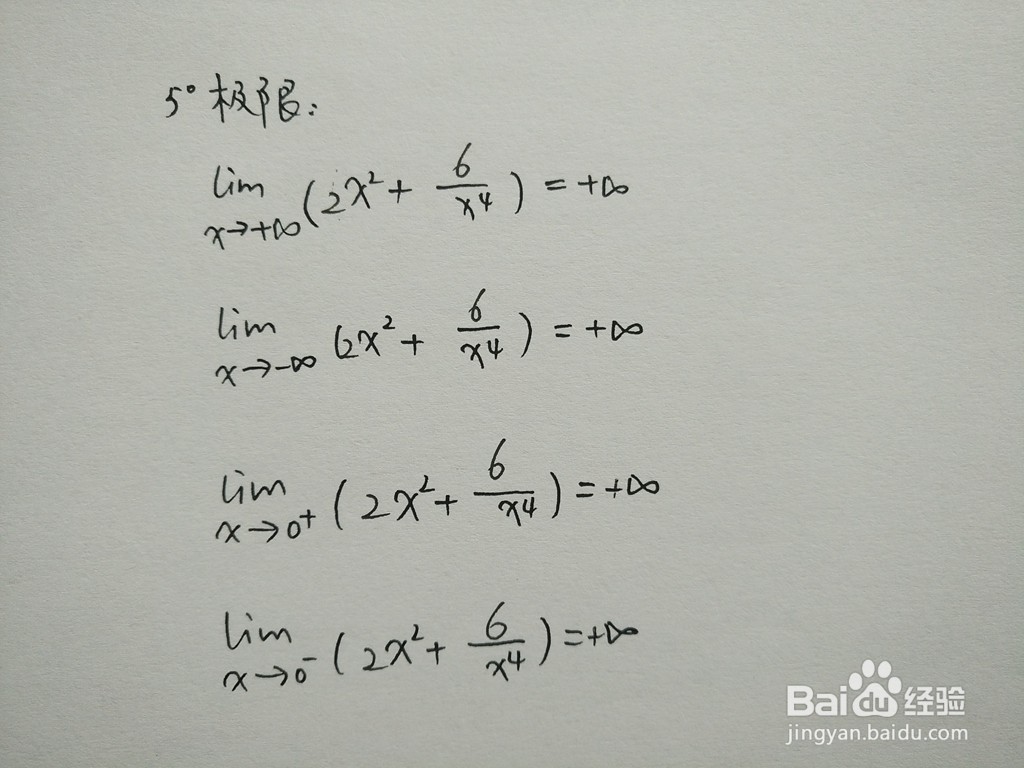 5° 极限:
lim x→+∞ (2x² + 6/x⁴) = +∞
lim x→-∞ (2x² + 6/x⁴) = +∞
lim x→0⁺ (2x² + 6/x⁴) = +∞
lim x→0⁻ (2x² + 6/x⁴) = +∞
Baidu 经验
jingyan.baidu.com